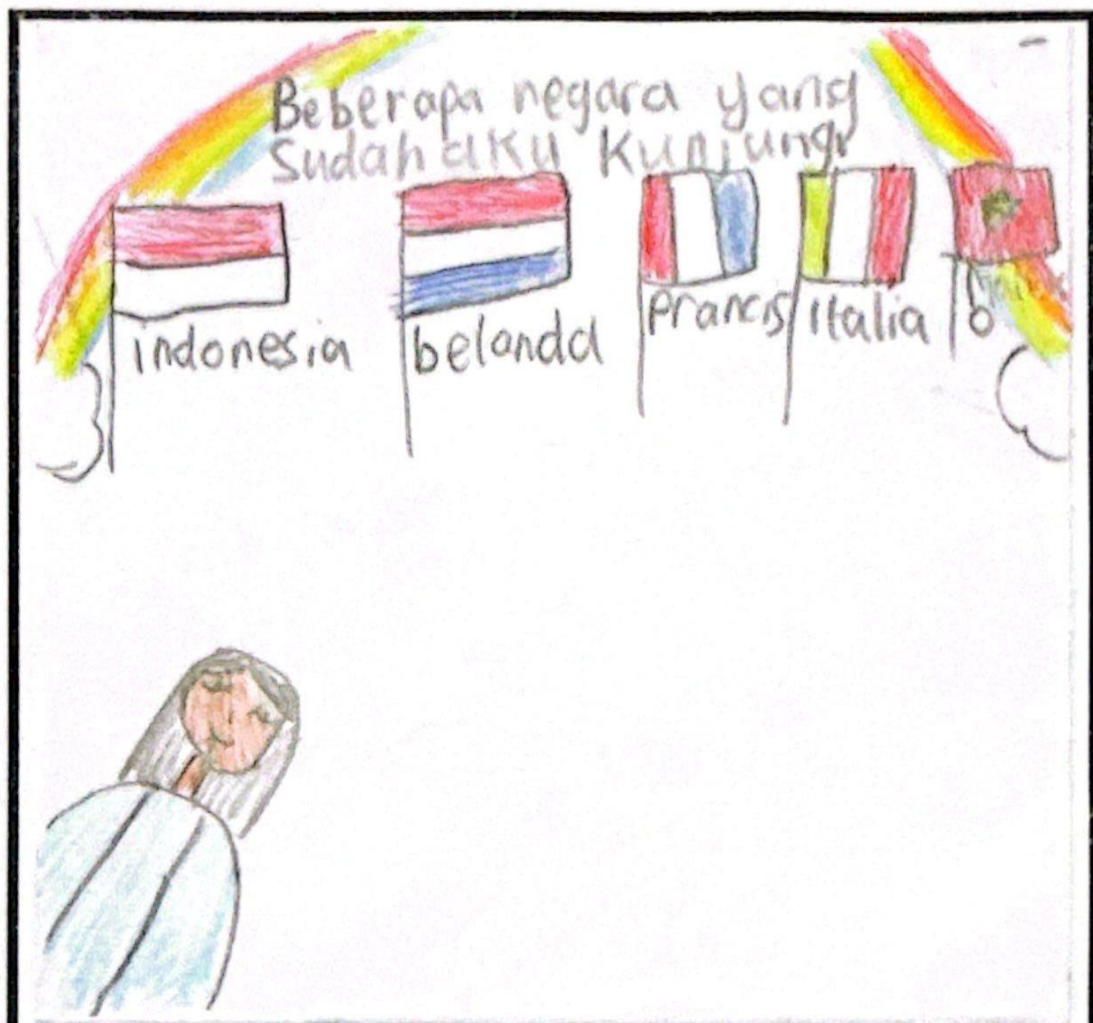 Beberapa negara yang
Sudah aku Kunjungi
indonesia
belanda
Prancis
italia
b